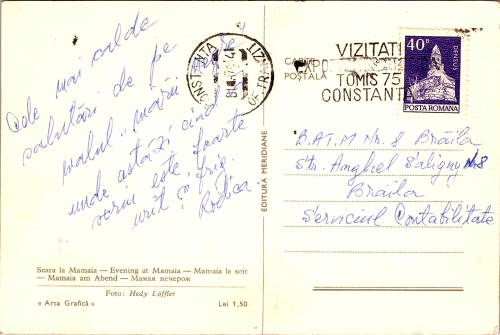 Cele mai calde
salutări de pe
malul mării
unde astăzi când
scriu este foarte
urît și frig.
Rodica
Seara la Mamaia — Evening at Mamaia — Mamaia le soir
— Mamaia am Abend — Мамая вечером
Foto: Hedy Löffler
« Arta Grafică » Lei 1,50
EDITURA MERIDIANE
CONSTANȚA
POȘTALĂ
VIZITATI
EXPO
TOMIS 75
CONSTANTA
40B
DENSUS
POSTA ROMANA
B.A.T.M Nr. 8 Brăila
Str. Anghel Saligny N 8
Brăila
Serviciul Contabilitate